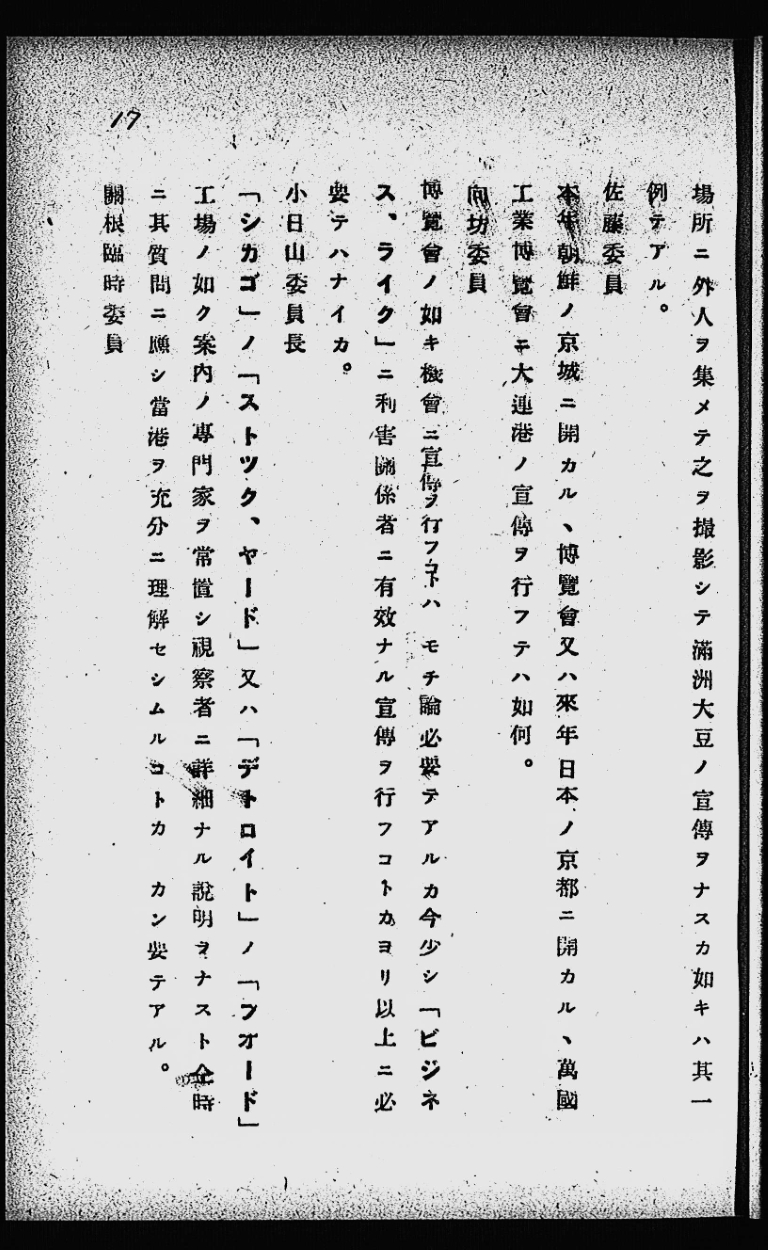 17
場所ニ外人ヲ集メテ之ヲ撮影シテ滿洲大豆ノ宣傳ヲナスカ如キハ其一
例テアル。
佐藤委員
本年朝鮮ノ京城ニ開カル、博覽會又ハ來年日本ノ京都ニ開カル、萬國
工業博覽會ニ大連港ノ宣傳ヲ行フテハ如何。
向坊委員
博覽會ノ如キ機會ニ宣傳ヲ行フコトハ モチ論必要テアルカ今少シ「ビジネ
ス、ライク」ニ利害關係者ニ有效ナル宣傳ヲ行フコトカヨリ以上ニ必
要テハナイカ。
小日山委員長
「シカゴ」ノ「ストツク、ヤード」又ハ「デトロイト」ノ「フオード」
工場ノ如ク案内ノ專門家ヲ常置シ視察者ニ詳細ナル說明ヲナスト仝時
ニ其質問ニ應シ當港ヲ充分ニ理解セシムルコトカ カン要テアル。
關根臨時委員